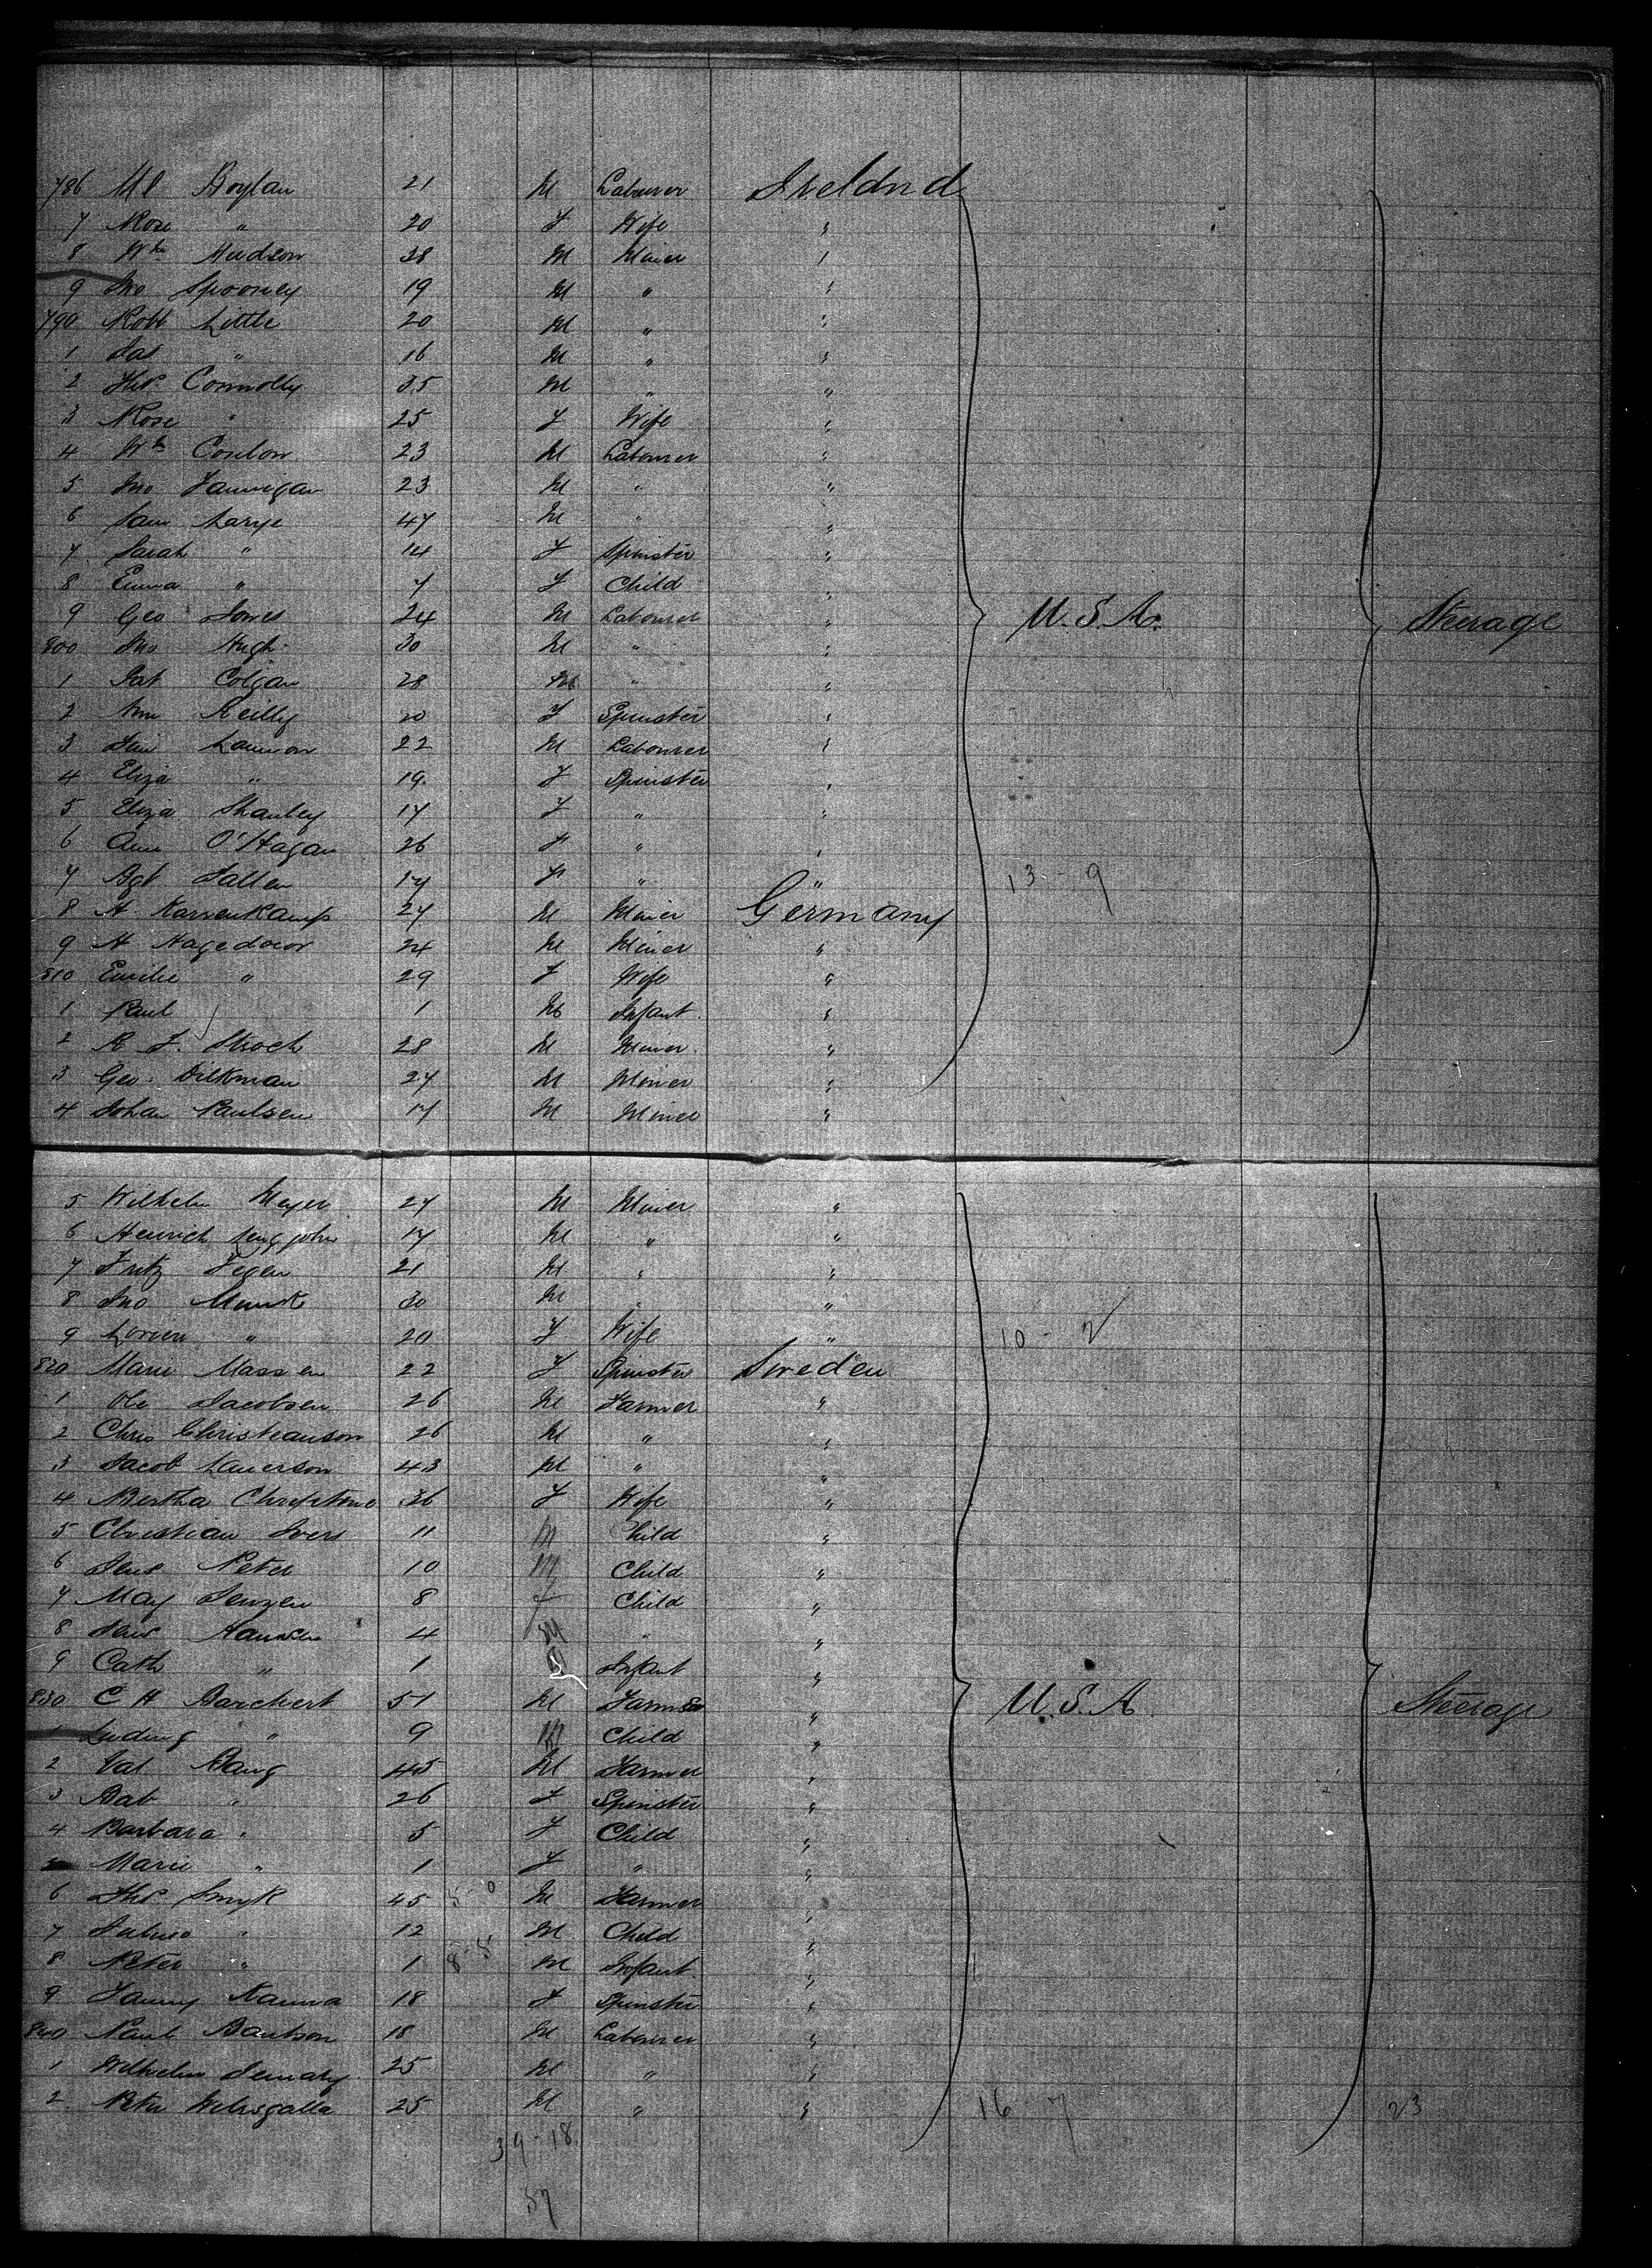 786 Ml Boylan 21 M Labourer Ireland
7 Rose " 20 F Wife "
8 Wm Hudson 38 M Miner "
9 Jno Spooney 19 M " "
790 Robt Little 20 M " "
1 Jas " 16 M " "
2 Thos Connolly 35 M " "
3 Rose " 25 F Wife "
4 Wm Conlon 23 M Labourer "
5 Jno Fannigan 23 M " "
6 Sam Large 47 M " "
7 Sarah " 14 F Spinster "
8 Emma " 7 F Child "
9 Geo Jones 24 M Labourer " U.S.A. Steerage
800 Jno Hugh 30 M " "
1 Pat Colgan 28 M " "
2 Ann Reilly 20 F Spinster "
3 Lannon 22 M Labourer "
4 Eliza " 19 F Spinster "
5 Eliza Shanley 17 F " "
6 Ann O'Hagan 26 F " "
7 Agt Fallen 17 F " " 13 - 9
8 H. Karrenkamp 27 M Miner Germany
9 H Hagedoor 24 M Miner "
810 Emilie " 29 F Wife "
1 Paul 1 M Infant "
2 R F. Stroch 28 M Miner "
3 Geo. Dilkman 27 M Miner "
4 Johan Paulsen 17 M Miner "
5 Wilhelm Meyer 27 M Miner "
6 Heinrich 17 M " "
7 Fritz Fegen 21 M " "
8 Jno Munk 30 M " "
9 " 20 F Wife " 10 - 2
820 Marie Massen 22 F Spinster Sweden
1 Ole Jacobsen 26 M Farmer "
2 Chris Christianson 26 M " "
3 Jacob Laverson 43 M " "
4 Bertha 36 F Wife "
5 Christian Ivers 11 M Child "
6 Jens Peter 10 M Child "
7 May Jenzen 8 F Child "
8 Jens Hansen 4 M " "
9 Cath " 1 Infant "
830 C H Barchert 51 M Farmer " U.S.A. Steerage
Ludwig " 9 M Child "
2 Val Bang 45 M Farmer "
3 Bab " 26 F Spinster "
4 Barbara " 5 F Child "
Marie " 1 F " "
6 Thos Smyk 45 5-0 M Farmer "
7 " 12 M Child "
8 Peter " 1 8-5 M Infant "
9 Fanny Kanna 18 F Spinster "
840 Paul Bantson 18 M Labourer "
1 Wilhelm 25 M " "
2 Peter 25 M " " 16 7 23
39-18
57